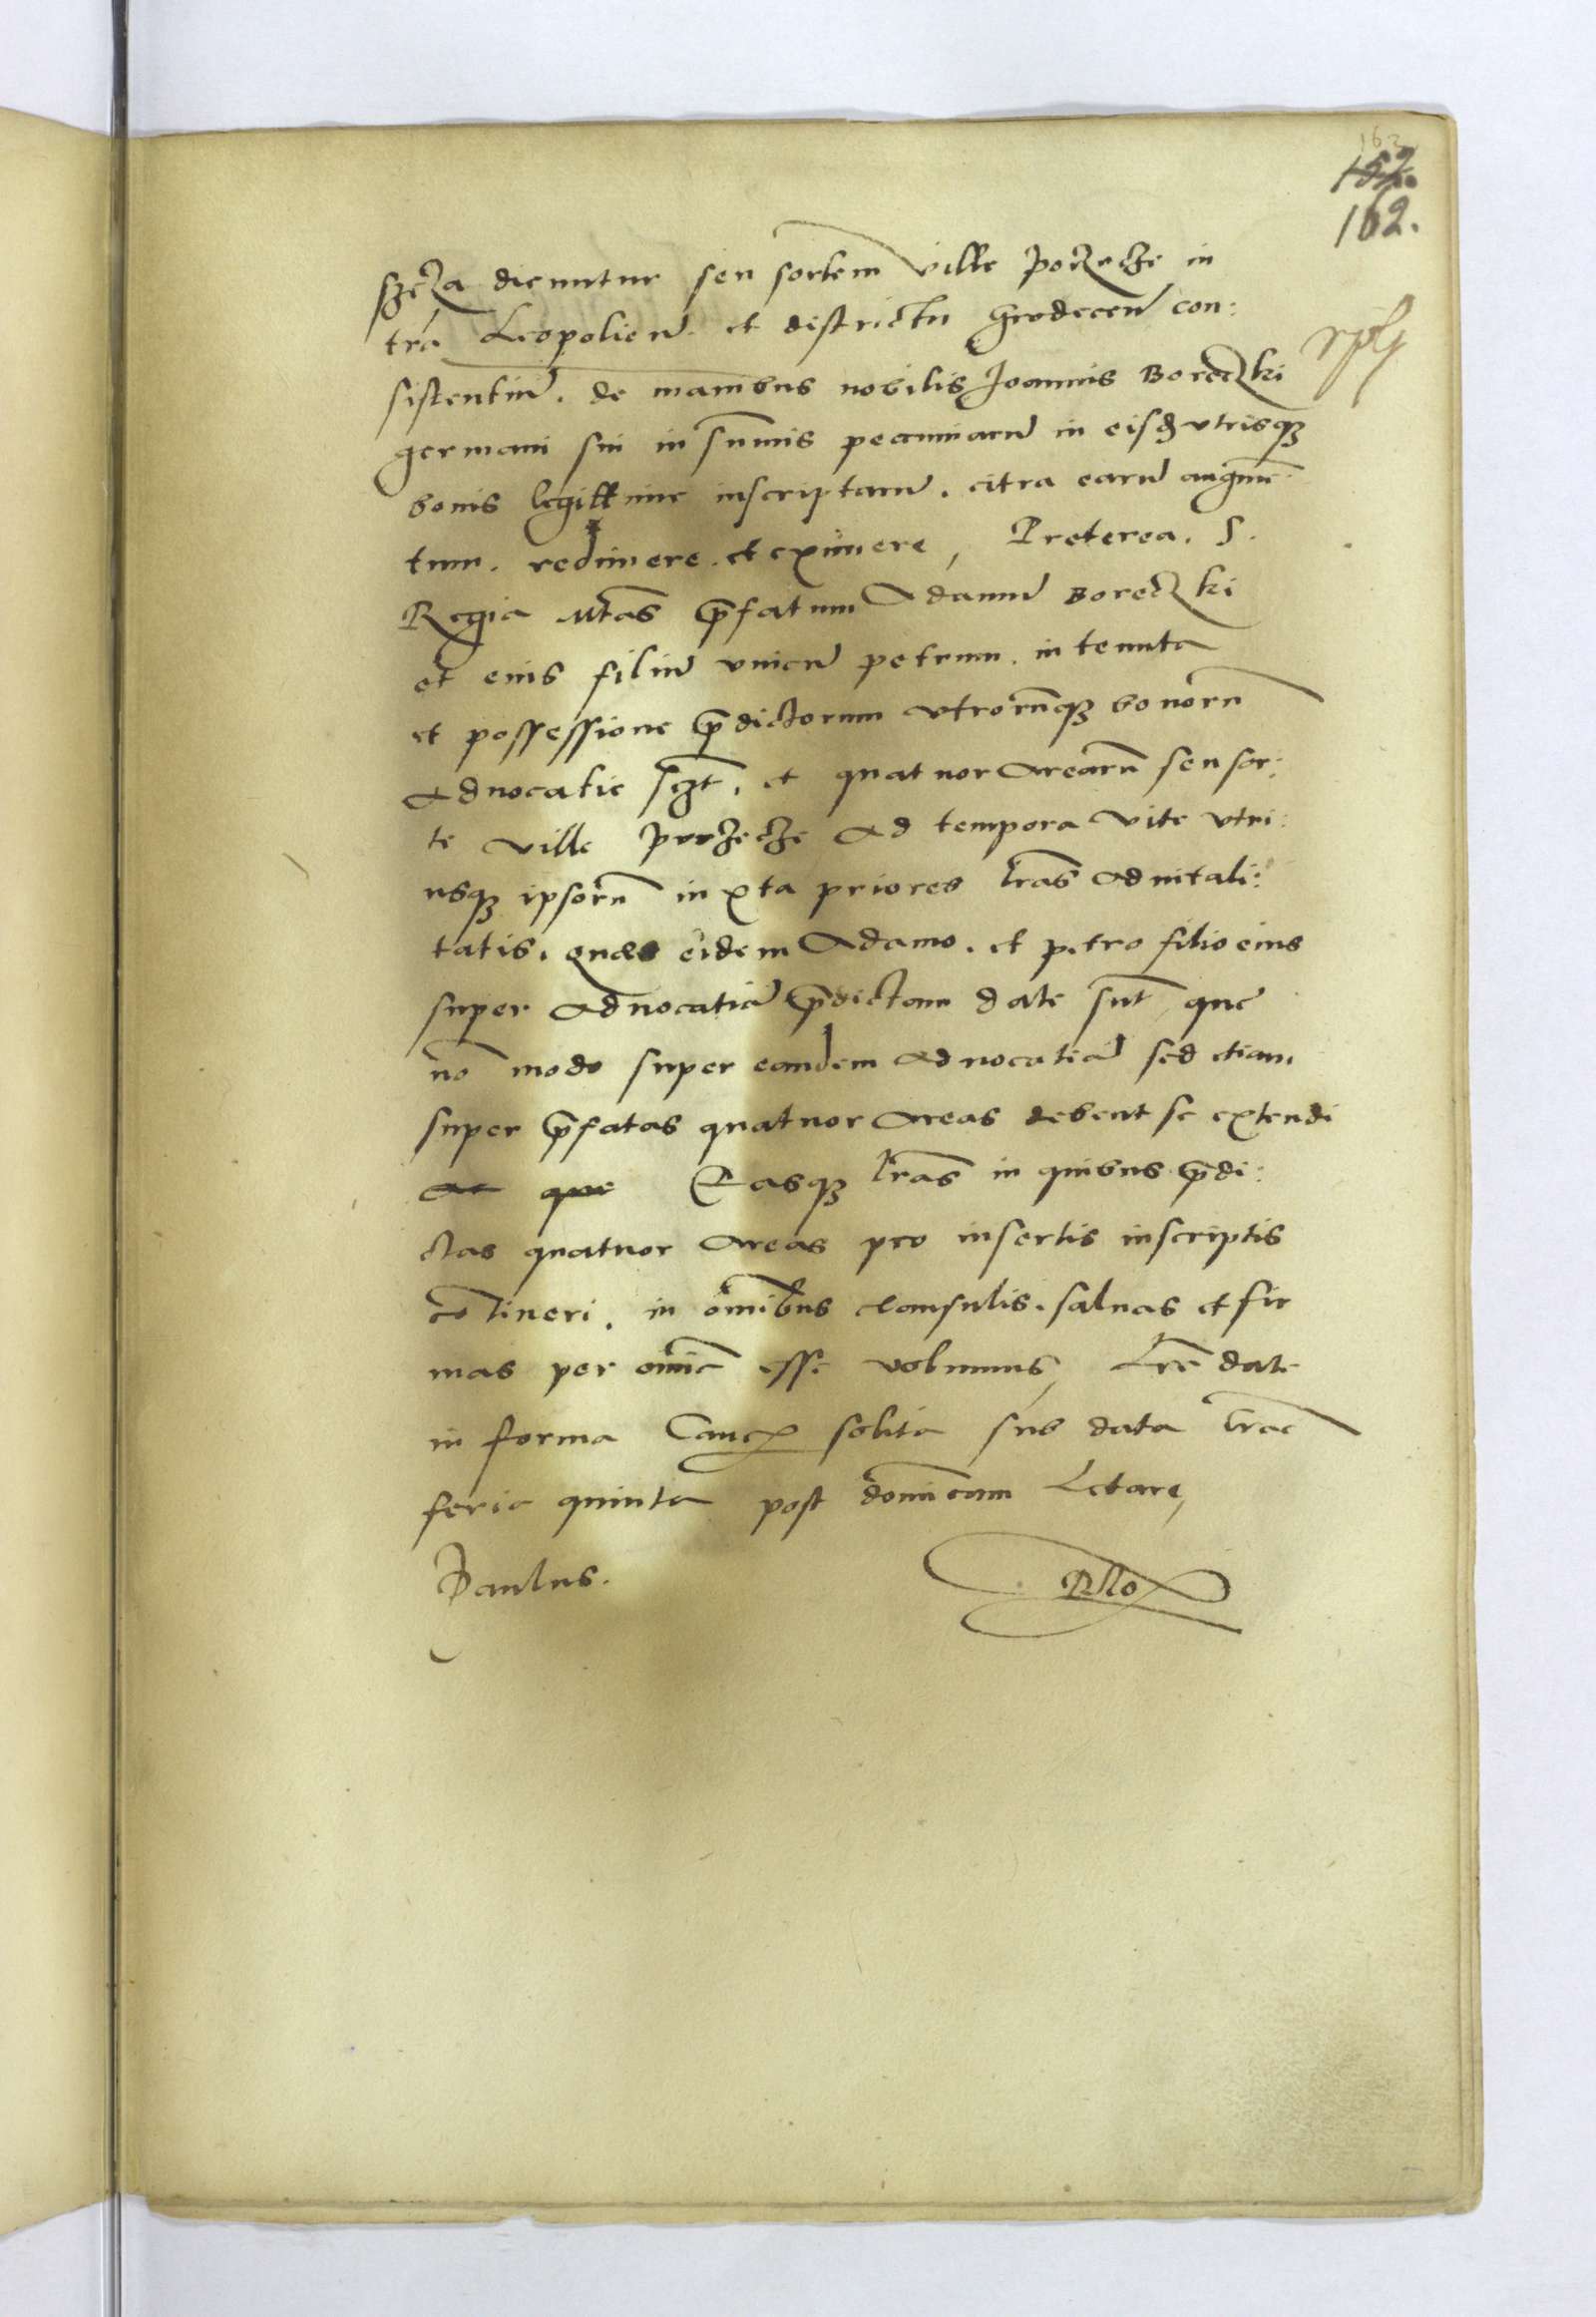 163
152.
162.
szcza dicuntur seu sortem ville Porzecze in
tra Leopolien. et districtu Grodecen con:
sistentiu. de manibus nobilis Joannis Boreczki
germani sui in summis pecuniaru in eisd utrisq
bonis legittime inscriptaru. citra earu augme
tum. redimere. et eximere, Preterea. S.
Regia Mtas pfatum Adamu Boreczki
et eius filiu unicu petrum. in tenuta
et possessione pdictorum utrorumq bonoru
Advocatie sczt. et quatuor Arearu seu sor:
te ville Porzecze Ad tempora vite utri:
usq ipsoru iuxta priores lras Advitali:
tatis. quae eidem Adamo. et petro filio eius
super Advocatia pdictam date sunt, que
no modo super eandem Advocatia sed etiam
super pfatas quatuor Areas debent se extendi
Ac que Easq lras in quibus pdi:
ctas quatuor Areas pro insertis inscriptis
cotineri. in omibus clausulis. saluas et fir
mas per omie esse volumus, Lre date
in forma Canc solita sub data Crac
feria quinta post domicam Letare,
Paulus.